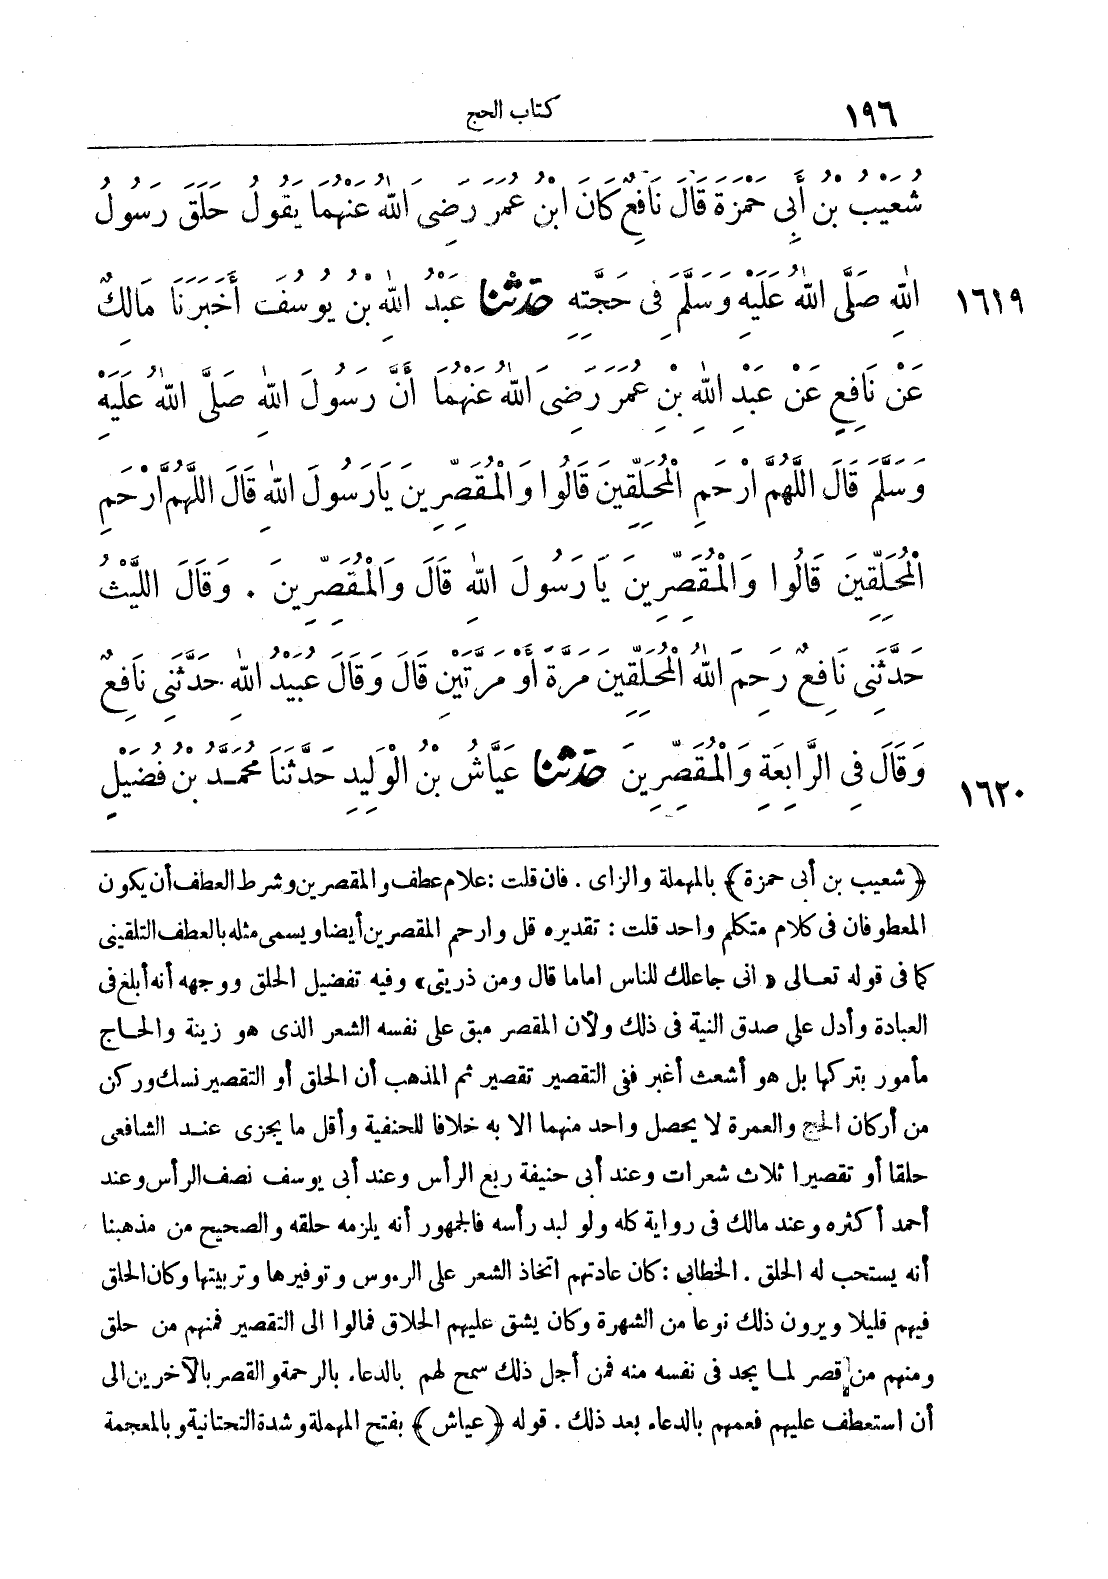 ١٩٦ كتاب الحج
شُعَيْبُ بْنُ أَبِي حَمْزَةَ قَالَ نَافِعٌ كَانَ ابْنُ عُمَرَ رَضِيَ اللهُ عَنْهُمَا يَقُولُ حَلَقَ رَسُولُ
اللهِ صَلَّى اللهُ عَلَيْهِ وَسَلَّمَ فِي حَجَّتِهِ حَدَّثَنَا عَبْدُ اللهِ بْنُ يُوسُفَ أَخْبَرَنَا مَالِكٌ ١٦١٩
عَنْ نَافِعٍ عَنْ عَبْدِ اللهِ بْنِ عُمَرَ رَضِيَ اللهُ عَنْهُمَا أَنَّ رَسُولَ اللهِ صَلَّى اللهُ عَلَيْهِ
وَسَلَّمَ قَالَ اللَّهُمَّ ارْحَمِ الْمُحَلِّقِينَ قَالُوا وَالْمُقَصِّرِينَ يَارَسُولَ اللهِ قَالَ اللَّهُمَّ ارْحَمِ
الْمُحَلِّقِينَ قَالُوا وَالْمُقَصِّرِينَ يَا رَسُولَ اللهِ قَالَ وَالْمُقَصِّرِينَ . وَقَالَ اللَّيْثُ
حَدَّثَنِي نَافِعٌ رَحِمَ اللهُ الْمُحَلِّقِينَ مَرَّةً أَوْ مَرَّتَيْنِ قَالَ وَقَالَ عُبَيْدُ اللهِ حَدَّثَنِي نَافِعٌ
وَقَالَ فِي الرَّابِعَةِ وَالْمُقَصِّرِينَ حَدَّثَنَا عَيَّاشُ بْنُ الْوَلِيدِ حَدَّثَنَا مُحَمَّدُ بْنُ فُضَيْلٍ ١٦٢٠
﴿شعيب بن أبى حمزة﴾ بالمهملة والزاى . فان قلت : علام عطف والمقصرين وشرط العطف أن يكون
المعطوفان فى كلام متكلم واحد قلت : تقديره قل وارحم المقصرين أيضا ويسمى مثله بالعطف التلقينى
كما فى قوله تعالى « انى جاعلك للناس اماما قال ومن ذريتى» وفيه تفضيل الحلق ووجهه أنه أبلغ فى
العبادة وأدل على صدق النية فى ذلك ولأن المقصر مبق على نفسه الشعر الذى هو زينة والحاج
مأمور بتركها بل هو أشعث أغبر ففى التقصير تقصير ثم المذهب أن الحلق أو التقصير نسك وركن
من أركان الحج والعمرة لا يحصل واحد منهما الا به خلافا للحنفية وأقل ما يجزى عند الشافعى
حلقا أو تقصيرا ثلاث شعرات وعند أبى حنيفة ربع الرأس وعند أبى يوسف نصف الرأس وعند
أحمد أكثره وعند مالك فى رواية كله ولو لبد رأسه فالجمهور أنه يلزمه حلقه والصحيح من مذهبنا
أنه يستحب له الحلق . الخطابى : كان عادتهم اتخاذ الشعر على الرءوس وتوفيرها وتربيتها وكان الحلق
فيهم قليلا ويرون ذلك نوعا من الشهرة وكان يشق عليهم الحلاق فمالوا الى التقصير فمنهم من حلق
ومنهم من قصر لما يجد فى نفسه منه فمن أجل ذلك سمح لهم بالدعاء بالرحمة والقصر بالآخرين الى
أن استعطف عليهم فعمهم بالدعاء بعد ذلك . قوله ﴿عياش﴾ بفتح المهملة وشدة التحتانية وبالمعجمة